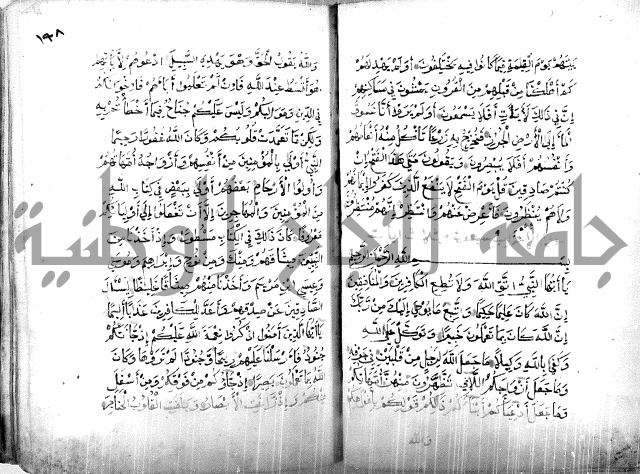 بينهم يوم القيمة فيما كانوا فيه يختلفون اولم يهد لهم
كم اهلكنا من قبلهم من القرون يمشون في مساكنهم
ان في ذلك لآيات افلا يسمعون اولم يروا انا نسوق
الماء الى الارض الجرز فنخرج به زرعا تأكل منه انعامهم
وانفسهم افلا يبصرون ويقولون متى هذا الفتح ان
كنتم صادقين قل يوم الفتح لا ينفع الذين كفروا ايمانهم
ولا هم ينظرون فاعرض عنهم وانتظر انهم منتظرون
بسم الله الرحمن الرحيم
يا ايها النبي اتق الله ولا تطع الكافرين والمنافقين
ان الله كان عليما حكيما واتبع ما يوحى اليك من ربك
ان الله كان بما تعملون خبيرا وتوكل على الله
وكفى بالله وكيلا ما جعل الله لرجل من قلبين في جوفه
وما جعل ازواجكم اللائي تظهرون منهن امهاتكم
وما جعل ادعياءكم ابناءكم ذلكم قولكم بافواهكم
والله
١٩٨
والله يقول الحق وهو يهدي السبيل ادعوهم لابائهم
هو اقسط عند الله فان لم تعلموا اباءهم فاخوانكم
في الدين ومواليكم وليس عليكم جناح فيما اخطأتم به
ولكن ما تعمدت قلوبكم وكان الله غفورا رحيما
النبي اولى بالمؤمنين من انفسهم وازواجه امهاتهم
واولوا الارحام بعضهم اولى ببعض في كتاب الله
من المؤمنين والمهاجرين الا ان تفعلوا الى اوليائكم
معروفا كان ذلك في الكتاب مسطورا واذ اخذنا من
النبيين ميثاقهم ومنك ومن نوح وابراهيم وموسى
وعيسى ابن مريم واخذنا منهم ميثاقا غليظا ليسأل
الصادقين عن صدقهم واعد للكافرين عذابا اليما
يا ايها الذين امنوا اذكروا نعمة الله عليكم اذ جاءتكم
جنود فارسلنا عليهم ريحا وجنودا لم تروها وكان
الله بما تعملون بصيرا اذ جاؤكم من فوقكم ومن اسفل
منكم واذ زاغت الابصار وبلغت القلوب الحناجر
جامعة النجاح الوطنية